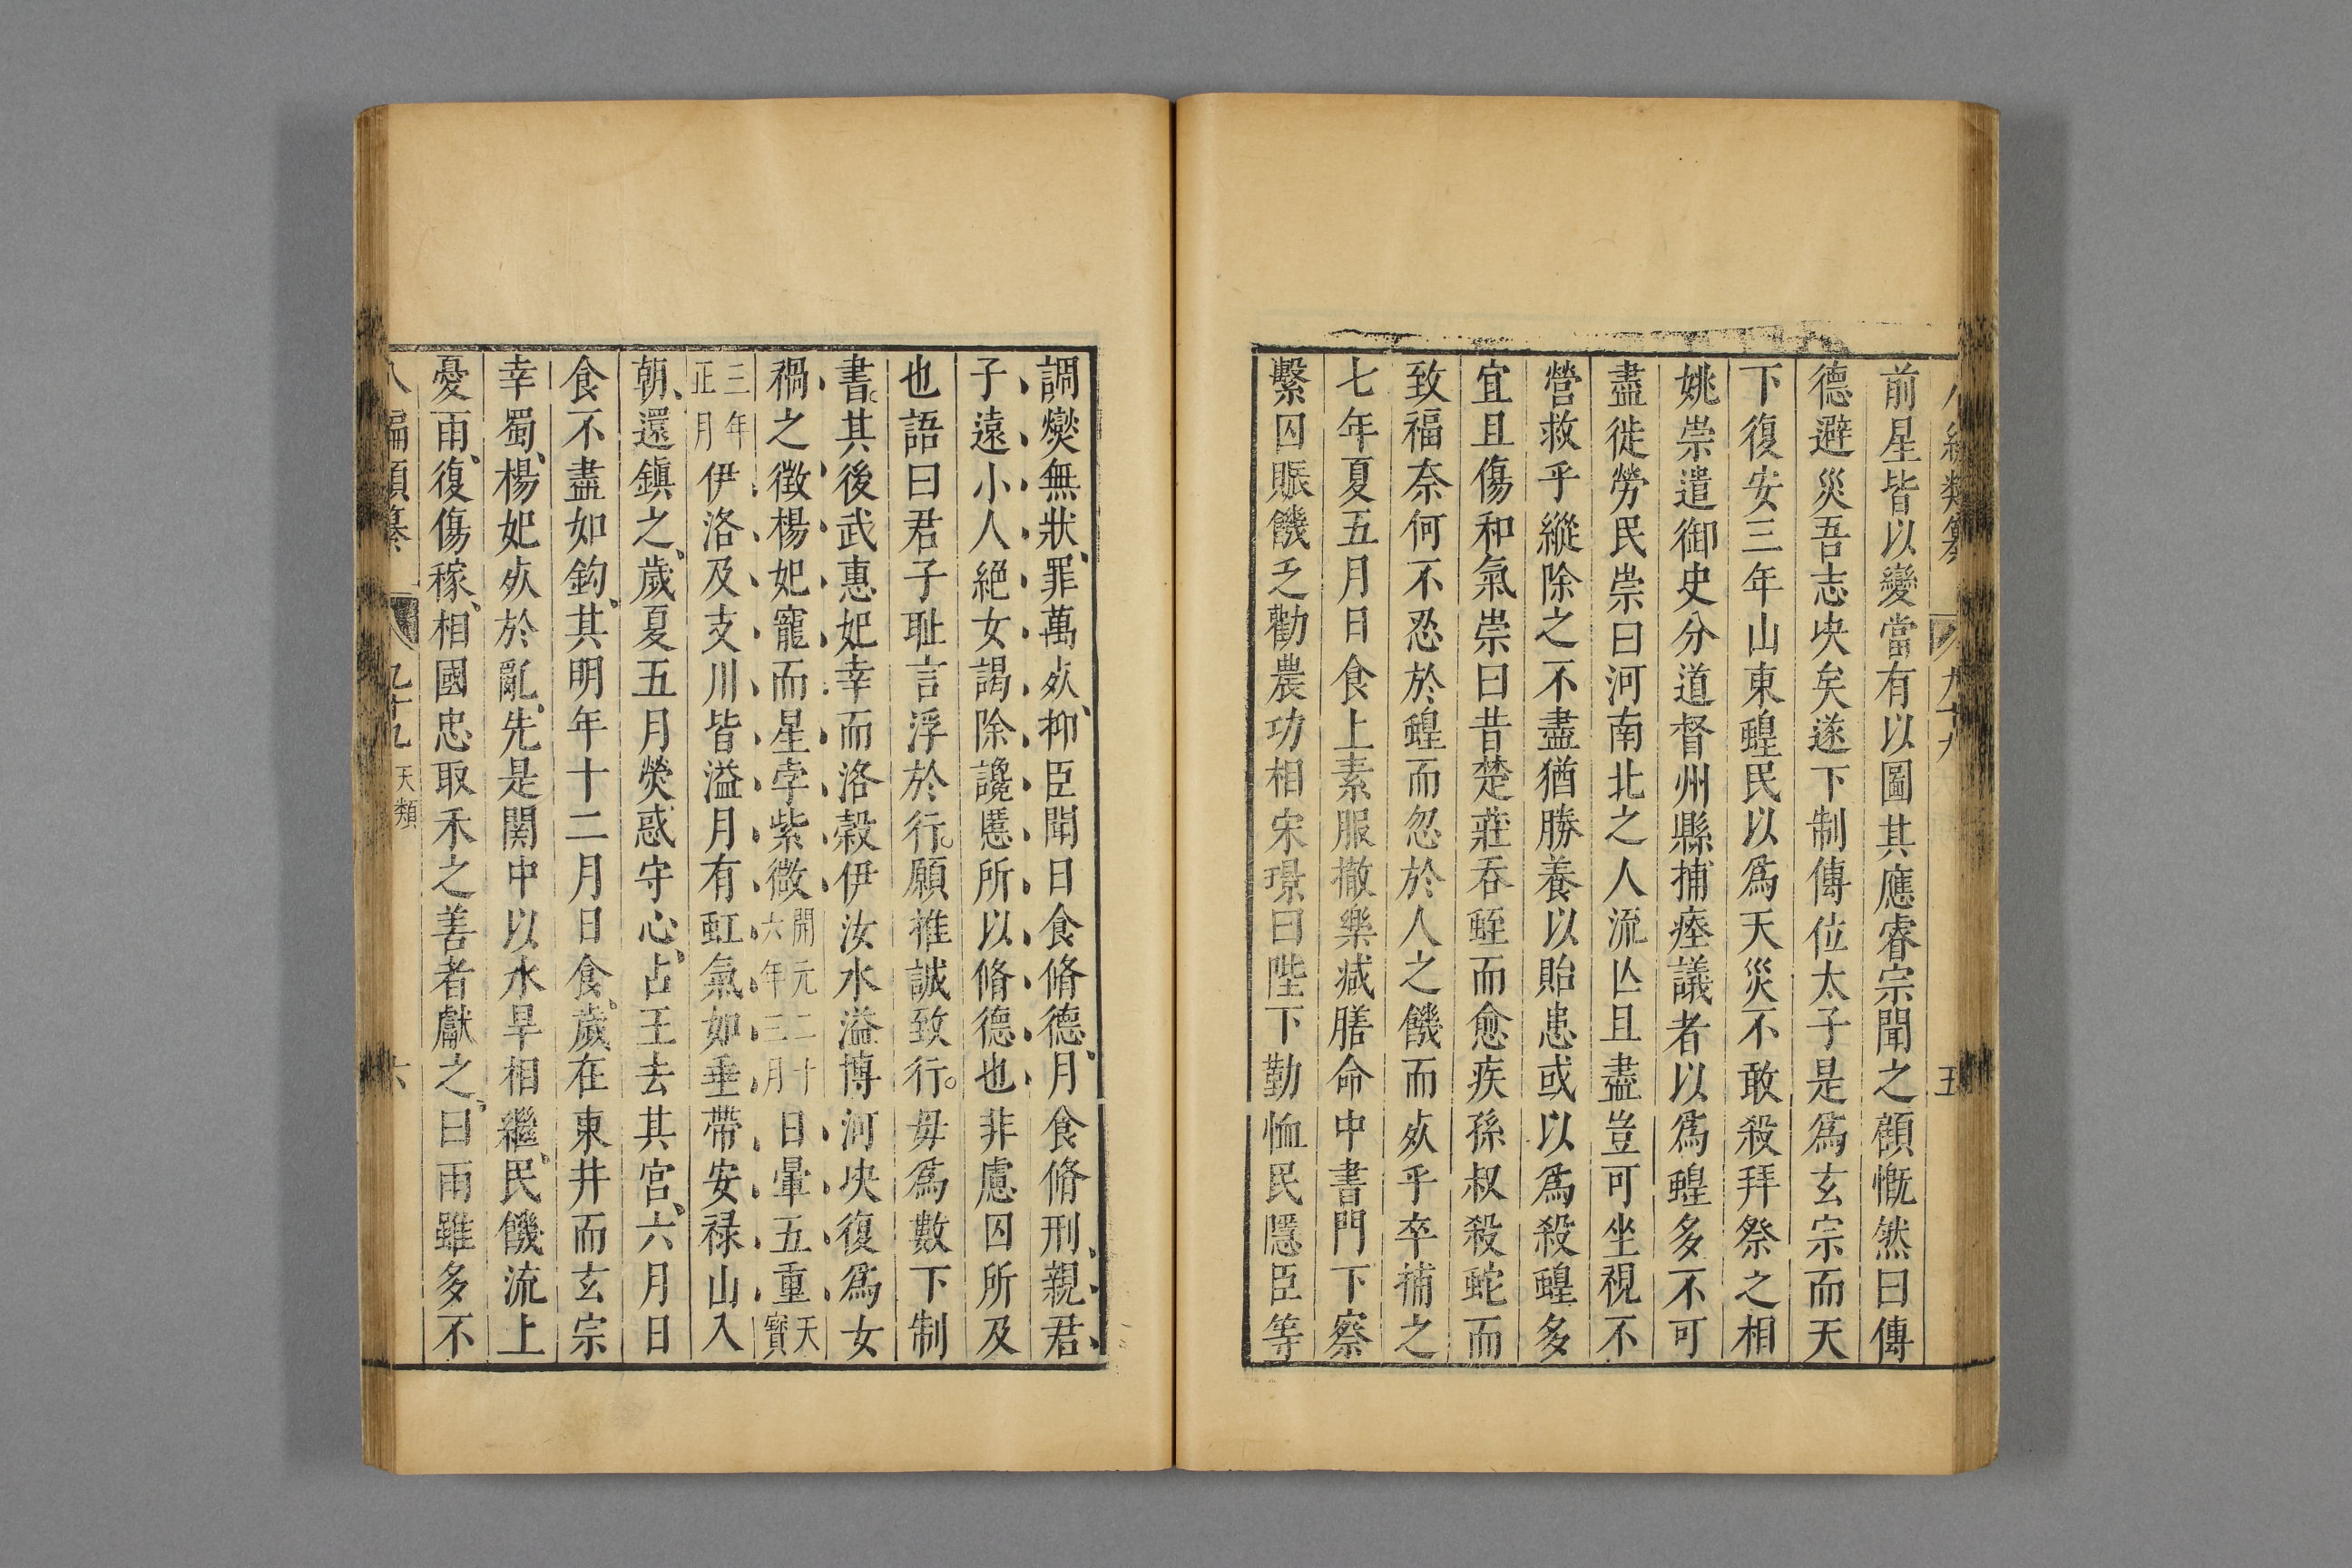 八編類纂 九十九 五
前星皆以變當有以圖其應睿宗聞之顧慨然曰傳
德避災吾志决矣遂下制傳位太子是爲玄宗而天
下復安三年山東蝗民以爲天災不敢殺拜祭之相
姚崇遣御史分道督州縣捕瘞議者以爲蝗多不可
盡徙勞民崇曰河南北之人流亾且盡豈可坐視不
營救乎縱除之不盡猶勝養以貽患或以爲殺蝗多
宜且傷和氣崇曰昔楚莊吞蛭而愈疾孫叔殺蛇而
致福奈何不忍於蝗而忽於人之饑而𣦸乎卒捕之
七年夏五月日食上素服撤樂減膳命中書門下察
繫囚賑饑乏勸農功相宋璟曰陛下勤恤民隱臣等
調燮無狀、罪萬𣦸、抑臣聞日食脩德、月食脩刑、親君
子遠小人絕女謁除讒慝所以脩德也非慮囚所及
也語曰君子耻言浮於行。願推誠致行。毋爲數下制
書。其後武惠妃幸而洛穀伊汝水溢博河决復爲女
禍之徵楊妃寵而星孛紫微開元二十六年三月日暈五重天寶
三年正月伊洛及支川皆溢月有虹氣如垂帶安禄山入
朝、還鎮之、歲夏五月熒惑守心、占王去其宮、六月日
食不盡如鈎、其明年十二月日食、歲在東井而玄宗
幸蜀、楊妃𣦸於亂、先是関中以水旱相繼、民饑流上
憂雨、復傷稼、相國忠取禾之善者獻之、曰雨雖多不
八編類纂 九十九 天類 六